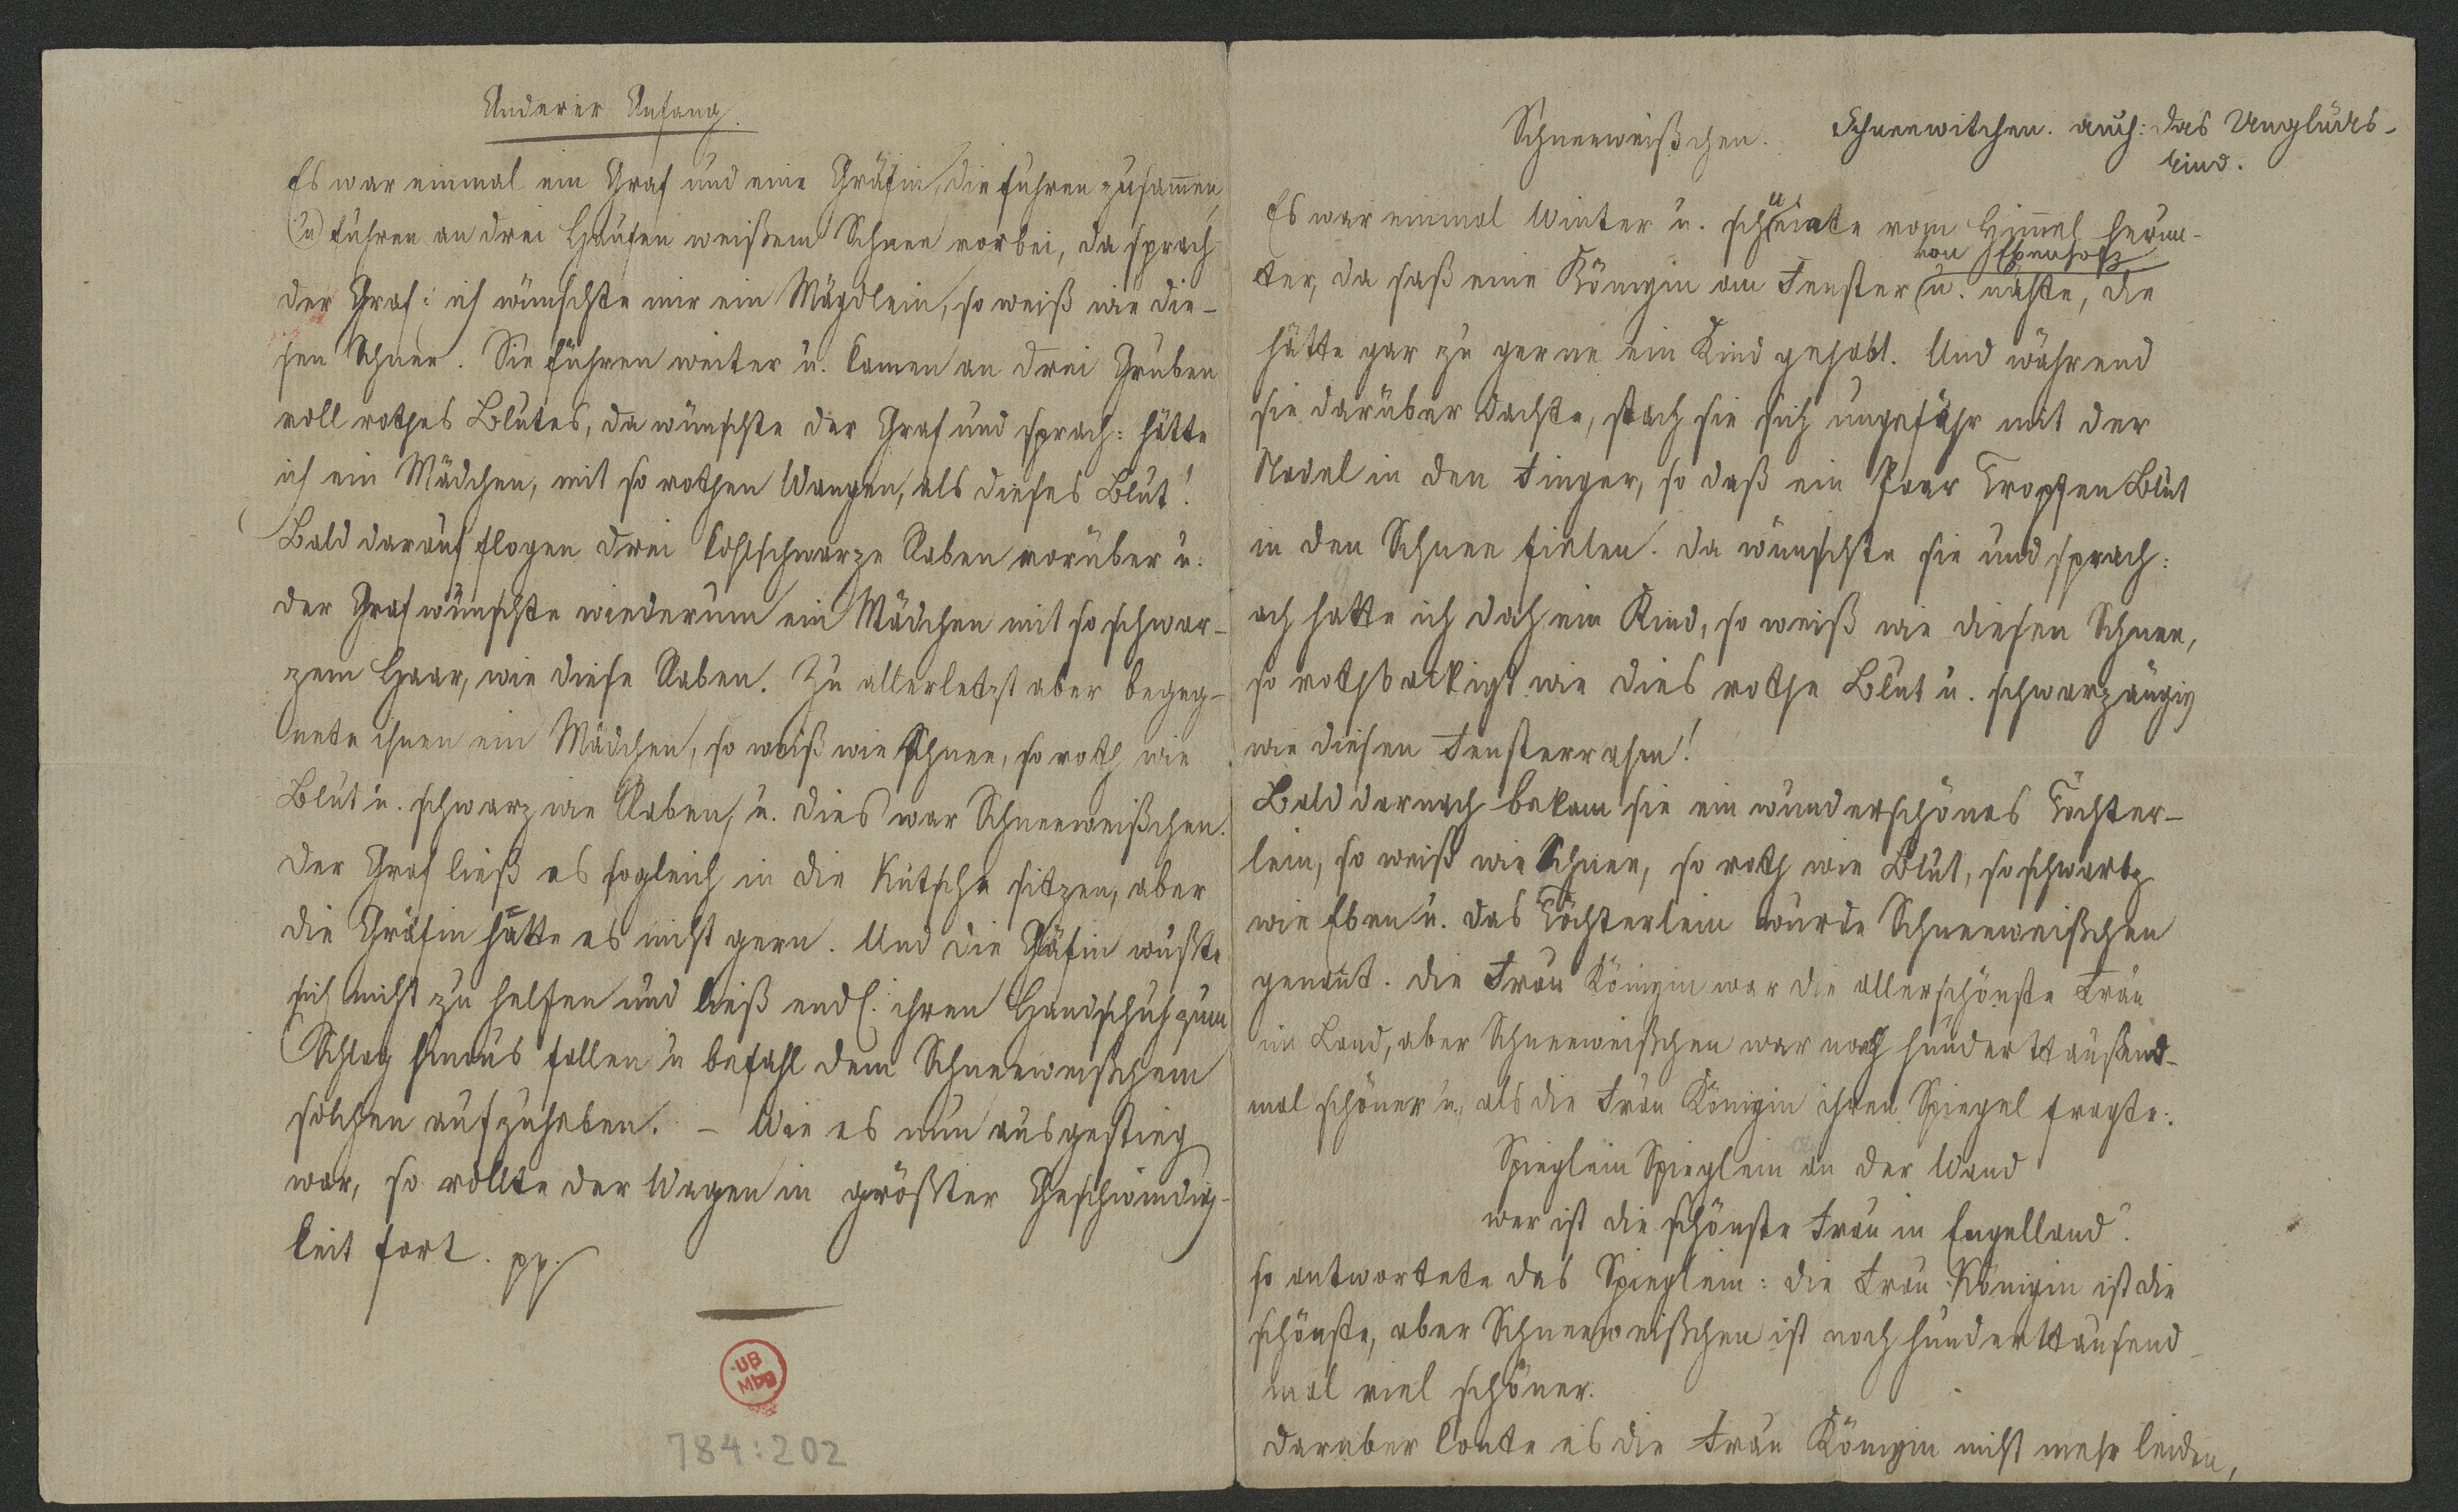 Anderer Anfang.
Es war einmal ein Graf und eine Gräfin, die fuhren zusam̄en,
(u) fuhren an drei Haufen weißem Schnee vorbei, da sprach
der Graf: ich wünschte mir ein Mägdlein, so weiß wie die-
sen Schnee. Sie fuhren weiter u. kamen an drei Gruben
voll rothes Blutes, da wünschte der Graf und sprach: hätte
ich ein Mädchen, mit so rothen Wangen, als dieses Blut!
Bald darauf flogen drei kohlschwarze Raben vorüber u.
der Graf wünschte wiederum ein Mädchen mit so schwar-
zem Haar, wie diese Raben. Zu allerletzt aber begeg-
nete ihnen ein Mädchen, so weiß wie Schnee, so roth wie
Blut u. schwarz wie Raben, u. dies war Schneeweißchen.
Der Graf ließ es sogleich in die Kutsche sitzen, aber
die Gräfin hatte es nicht gern. Und die Gräfin wußte
sich nicht zu helfen und ließ endl. ihren Handschuh zum
Schlag hinaus fallen u befahl dem Schneeweißchem
solchen aufzuheben. – Wie es nun ausgestieg
war, so rollte der Wagen in größter Geschwindig-
keit fort. pp.
UB
Mbg
784:202
Schneeweißchen. Schneewitchen. auch: das Unglücks-
kind.
Es war einmal Winter u. schneiate vom Him̄el herun-
von Ebenholz
ter, da saß eine Königin am Fenster u. nähte, die
hätte gar zu gerne ein Kind gehabt. Und während
sie darüber dachte, stach sie sich ungefähr mit der
Nadel in den Finger, so daß ein Paar Tropfen Blut
in den Schnee fielen. Da wünschte sie und sprach:
ach hatte ich doch ein Kind, so weiß wie diesen Schnee,
so rothbackigt wie dies rothe Blut u. schwarzäugig
wie diesen Fensterrahm!
Bald darnach bekam sie ein wunderschönes Töchter-
lein, so weiß wie Schnee, so roth wie Blut, so schwartz
wie Eben u. das Töchterlein wurde Schneeweißchen
genan̄t. Die Frau Königin war die allerschönste Frau
im Land, aber Schneeweißchen war noch hunderttausend-
mal schöner u. als die Frau Königin ihren Spiegel fragte:
Spieglein Spieglein an der Wand
wer ist die schönste Frau in Engelland?
so antwortete das Spieglein: die Frau Königin ist die
schönste, aber Schneeweißchen ist noch hunderttausend-
mal viel schöner.
Darüber konte es die Frau Königin nicht mehr leiden,